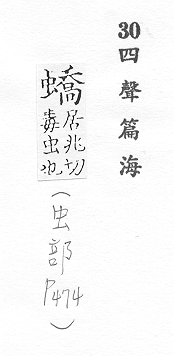 30四聲篇海
蟜居兆切
毒虫也
（虫部P474）